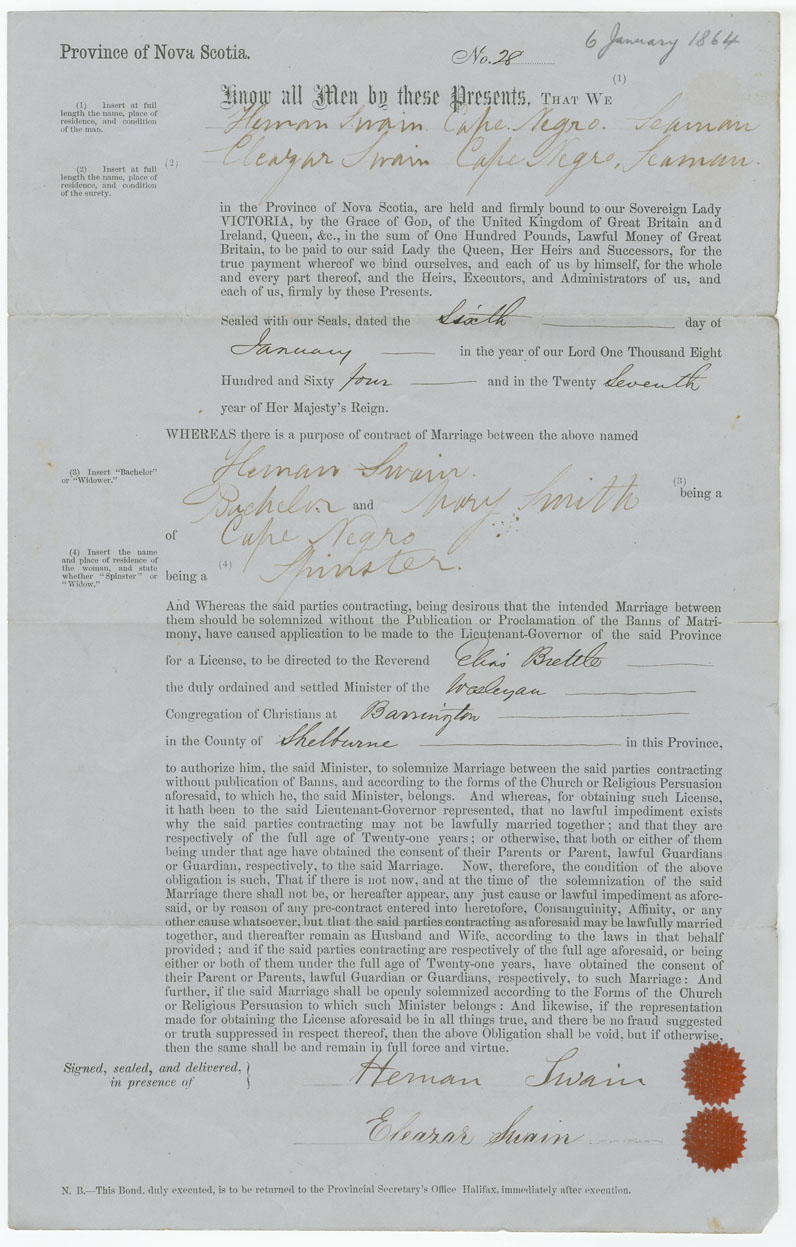 6 January 1864
Province of Nova Scotia.
No. 28
Know all Men by these Presents, THAT WE (1)
(1) Insert at full
length the name, place of
residence, and condition
of the man.
Heman Swain. Cape Negro. Seaman
(2) Eleazar Swain Cape Negro, Seaman.
(2) Insert at full
length the name, place of
residence, and condition
of the surety.
in the Province of Nova Scotia, are held and firmly bound to our Sovereign Lady
VICTORIA, by the Grace of GOD, of the United Kingdom of Great Britain and
Ireland, Queen, &c., in the sum of One Hundred Pounds, Lawful Money of Great
Britain, to be paid to our said Lady the Queen, Her Heirs and Successors, for the
true payment whereof we bind ourselves, and each of us by himself, for the whole
and every part thereof, and the Heirs, Executors, and Administrators of us, and
each of us, firmly by these Presents.
Sealed with our Seals, dated the Sixth day of
January in the year of our Lord One Thousand Eight
Hundred and Sixty four and in the Twenty Seventh
year of Her Majesty's Reign.
WHEREAS there is a purpose of contract of Marriage between the above named
Heman Swain.
(3) Insert "Bachelor"
or "Widower."
(3) being a
Bachelor and Mary Smith
of Cape Negro
(4) Insert the name
and place of residence of
the woman, and state
whether "Spinster" or
"Widow."
being a (4) Spinster.
And Whereas the said parties contracting, being desirous that the intended Marriage between
them should be solemnized without the Publication or Proclamation of the Banns of Matri-
mony, have caused application to be made to the Lieutenant-Governor of the said Province
for a License, to be directed to the Reverend Elias Brettle
the duly ordained and settled Minister of the Wesleyan
Congregation of Christians at Barrington
in the County of Shelburne in this Province,
to authorize him, the said Minister, to solemnize Marriage between the said parties contracting
without publication of Banns, and according to the forms of the Church or Religious Persuasion
aforesaid, to which he, the said Minister, belongs. And whereas, for obtaining such License,
it hath been to the said Lieutenant-Governor represented, that no lawful impediment exists
why the said parties contracting may not be lawfully married together; and that they are
respectively of the full age of Twenty-one years; or otherwise, that both or either of them
being under that age have obtained the consent of their Parents or Parent, lawful Guardians
or Guardian, respectively, to the said Marriage. Now, therefore, the condition of the above
obligation is such, That if there is not now, and at the time of the solemnization of the said
Marriage there shall not be, or hereafter appear, any just cause or lawful impediment as afore-
said, or by reason of any pre-contract entered into heretofore, Consanguinity, Affinity, or any
other cause whatsoever, but that the said parties contracting as aforesaid may be lawfully married
together, and thereafter remain as Husband and Wife, according to the laws in that behalf
provided; and if the said parties contracting are respectively of the full age aforesaid, or being
either or both of them under the full age of Twenty-one years, have obtained the consent of
their Parent or Parents, lawful Guardian or Guardians, respectively, to such Marriage: And
further, if the said Marriage shall be openly solemnized according to the Forms of the Church
or Religious Persuasion to which such Minister belongs: And likewise, if the representation
made for obtaining the License aforesaid be in all things true, and there be no fraud suggested
or truth suppressed in respect thereof, then the above Obligation shall be void, but if otherwise,
then the same shall be and remain in full force and virtue.
Signed, sealed, and delivered,
in presence of
Heman Swain
Eleazar Swain
N. B.—This Bond, duly executed, is to be returned to the Provincial Secretary's Office Halifax, immediately after execution.